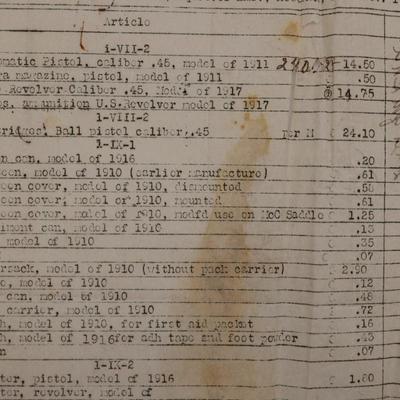 Article
i-VII-2
omatic Pistol, caliber .45, model of 1911 14.50
ra magazine, pistol, model of 1911 .50
Revolver Caliber .45, Model of 1917 @ 14.75
U.S.Revolver model of 1917
1-VIII-2
Ball pistol caliber .45 per M 24.10
1-IX-1
on can, model of 1916 .20
een, model of 1910 (earlier manufacture) .61
een cover, model of 1910, dismounted .58
een cover, model of 1910, mounted .61
een cover, model of 1910, modfd use on McC Saddle 1.25
diment can, model of 1910 .13
model of 1910 .35
.07
ersack, model of 1910 (without pack carrier) 2.90
model of 1910 .12
can, model of 1910 .48
carrier, model of 1910 .72
h, model of 1910, for first aid packet .16
h, model of 1916 for adh tape and foot powder .43
n .07
1-IX-2
ter, pistol, model of 1916 1.80
ter, revolver, model of